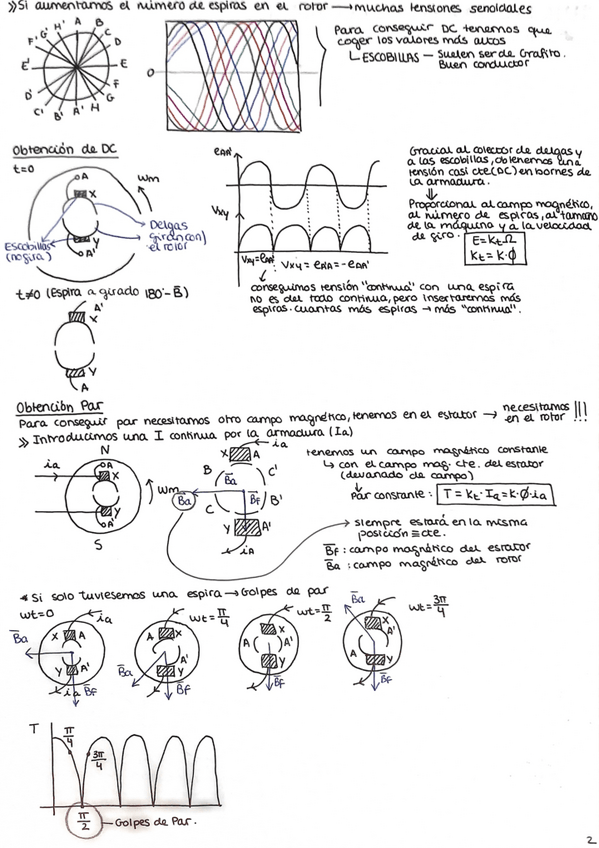 »Si aumentamos el número de espiras en el rotor → muchas tensiones senoidales
A
B
C
D
E
F
G
H
A'
B'
C'
D'
E'
F'
G'
H'
0
Para conseguir DC tenemos que
coger los valores más altos
ESCOBILLAS — Suelen ser de Grafito.
Buen conductor
Obtención de DC
t=0
A
X
Y
A'
Wm
Escobillas
(no gira)
Delgas
giran con
el rotor
eAA'
Vxy
Vxy=eAA'
Vxy = eA'A = -eAA'
conseguimos tensión "continua" con una espira
no es del todo continua, pero insertaremos más
espiras. cuantas más espiras → más "continua".
Gracial al colector de delgas y
a las escobillas, obtenemos una
tensión casi cte (DC) en bornes de
la armadura.
⇓
Proporcional al campo magnético,
al número de espiras, al tamaño
de la máquina y a la velocidad
de giro.
E=Kt.Ω
Kt=K.Φ
t≠0 (Espira a girado 180°-B̅)
A'
X
Y
A
Obtención Par
Para conseguir par necesitamos otro campo magnético, tenemos en el estator → necesitamos en el rotor !!!
» Introducimos una I continua por la armadura (Ia)
N
ia
A
X
Y
A'
S
Wm
ia
X
A
B
C'
B̅a
B̅a
B̅f
C
B'
Y
A'
iA
tenemos un campo magnético constante
↳ con el campo mag. cte. del estator
(devanado de campo)
Par constante: T = Kt.Ia = K.Φ.ia
siempre estará en la misma
posición ≡ cte.
B̅f: campo magnético del estator
B̅a: campo magnético del rotor
* Si solo tuviesemos una espira → Golpes de par
wt=0
ia
X
A
B̅a
Y
A'
ia
B̅f
wt=π/4
A
X
B̅a
A'
Y
B̅f
wt=π/2
X
A
A'
Y
B̅f
wt=3π/4
B̅a
X
A'
A
Y
B̅f
T
π/4
3π/4
π/2
Golpes de Par.
2